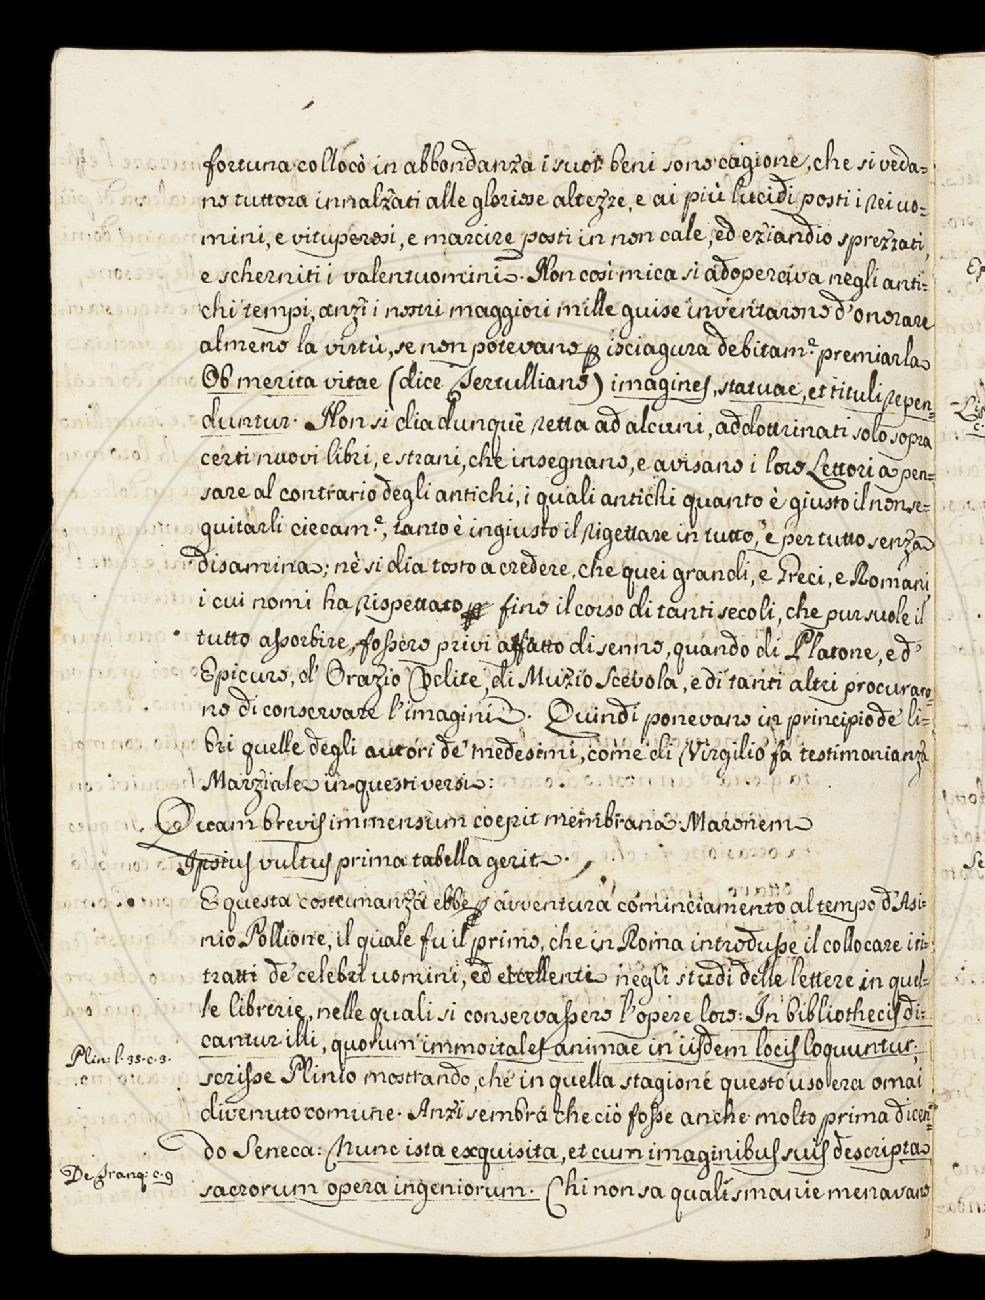 fortuna collocò in abbondanza i suoi beni sono cagione, che si veda-
no tuttora innalzati alle gloriose altezze, e ai più lucidi posti i rei uo-
mini, e vituperosi, e marcire posti in non cale, ed eziandio sprezzati,
e scherniti i valentuomini. Non così mica si adoperava negli anti-
chi tempi, anzi i nostri maggiori mille guise inventarono d'onorare
almeno la virtù, se non potevano p isciagura debitam.e premiarla
Ob merita vitae (dice Tertulliano) imagines, statuae, et tituli repen-
duntur. Non si dia dunque retta ad alcuni, addottrinati solo sopra
certi nuovi libri, e strani, che insegnano, e avisano i loro Lettori a pen-
sare al contrario degli antichi, i quali antichi quanto è giusto il non se-
guitarli ciecam.e, tanto è ingiusto il rigettare in tutto, e per tutto senza
disamina; nè si dia tosto a credere, che quei grandi, e Greci, e Romani
i cui nomi ha rispettato fino il corso di tanti secoli, che pur suole il
tutto assorbire, fossero privi affatto di senno, quando di Platone, e d'
Epicuro, d'Orazio Coclite, di Muzio Scevola, e di tanti altri procuraro-
no di conservare l'imagini. Quindi ponevano in principio de' li-
bri quelle degli autori de' medesimi, come di Virgilio fa testimonianza
Marziale in questi versi:
Quam brevis immensum coepit membrana Maronem
Ipsius vultus prima tabella gerit.
E questa costumanza ebbe p avventura cominciamento al tempo d'Asi-
nio Pollione, il quale fu il primo, che in Roma introdusse il collocare i ri-
tratti de' celebri uomini, ed eccellenti negli studi delle lettere in quel-
le librerie, nelle quali si conservassero l'opere loro: In bibliothecis di-
cantur illi, quorum immortales animae in iisdem locis loquuntur;
Plin: l. 35. c. 3.
scrisse Plinio mostrando, che in quella stagione questo uso era omai
divenuto comune. Anzi sembra che ciò fosse anche molto prima dicen-
do Seneca: Nunc ista exquisita, et cum imaginibus suis descripta
De Tranq: c. 9
sacrorum opera ingeniorum. Chi non sa quali smanie menavano